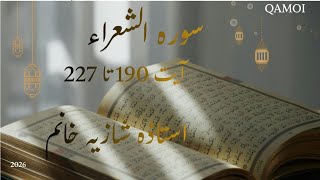 QAMOI
سورہ الشعراء
آیت 190 تا 227
استاذہ شازیہ خانم
2026